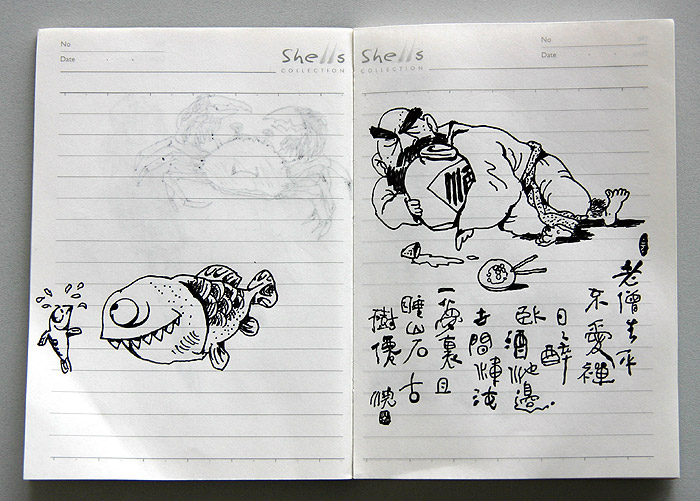 No
Date
Shells
COLLECTION
Shells
COLLECTION
No
Date
老僧生平
不愛禪
日々醉
卧酒池邊
世間渾沌
一夢裏且
睡山石古
樹偎